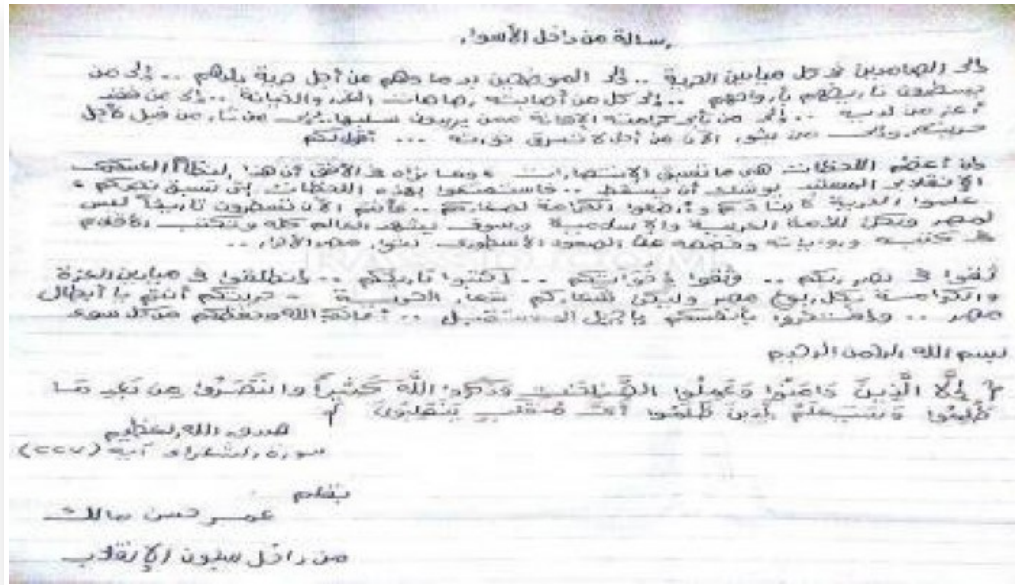 رسالة من داخل الأسوار
إلى الصامدين في كل ميادين الحرية .. إلى المضحين بدمائهم من أجل حرية بلدهم .. إلى من
يسطرون تاريخهم بأرواحهم .. إلى كل من أصابته رصاصات الغدر والخيانة .. إلى من فقد
أعز من لديه .. إلى من تأبى كرامته الإهانة ممن يريدون سلبها من ثار من قبل لأجل
حريته من يثور الآن من أجل لا تسرق ثورته ... أقول لكم
إن أعظم اللحظات هي ما تسبق الإنتصارات وما نراه في الأفق أن هذا النظام العسكري
الإنقلابي المستبد يوشك أن يسقط .. فاستمتعوا بهذه اللحظات التي تسبق نصركم
علموا الحرية لأبنائكم وأرضعوا الكرامة لصغاركم .. فأنتم الآن تسطرون تاريخاً ليس
لمصر ولكن للأمة العربية والإسلامية وسوف يشهد العالم كله وتكتب الأقلام
في كتبه ورواياته وقصصه هذا الصمود الأسطوري لثوار مصر الأحرار ..
ثقوا في نصر ربكم .. وثقوا في ثوراتكم .. اكتبوا تاريخكم .. إنطلقوا في ميادين العزة
والكرامة بكل ربوع مصر وليكن شعاركم شعار الحرية - حريتكم أنتم يا أبطال
مصر .. وإفتخروا بأنفسكم يا جيل المستقبل .. أعانكم الله وحفظكم من كل سوء
بسم الله الرحمن الرحيم
إِلَّا الَّذِينَ ءَامَنُوا وَعَمِلُوا الصَّالِحَاتِ وَذَكَرُوا اللَّهَ كَثِيراً وَانْتَصَرُوا مِن بَعْدِ مَا
ظُلِمُوا وَسَيَعْلَمُ الَّذِينَ ظَلَمُوا أَيَّ مُنقَلَبٍ يَنقَلِبُونَ
صدق الله العظيم
سورة الشعراء آية (٢٢٧)
بقلم
عمر حسن مالك
من داخل سجون الإنقلاب